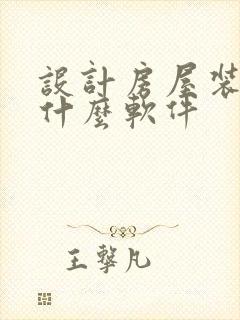 設計房屋裝
什麼軟件
王擊凡